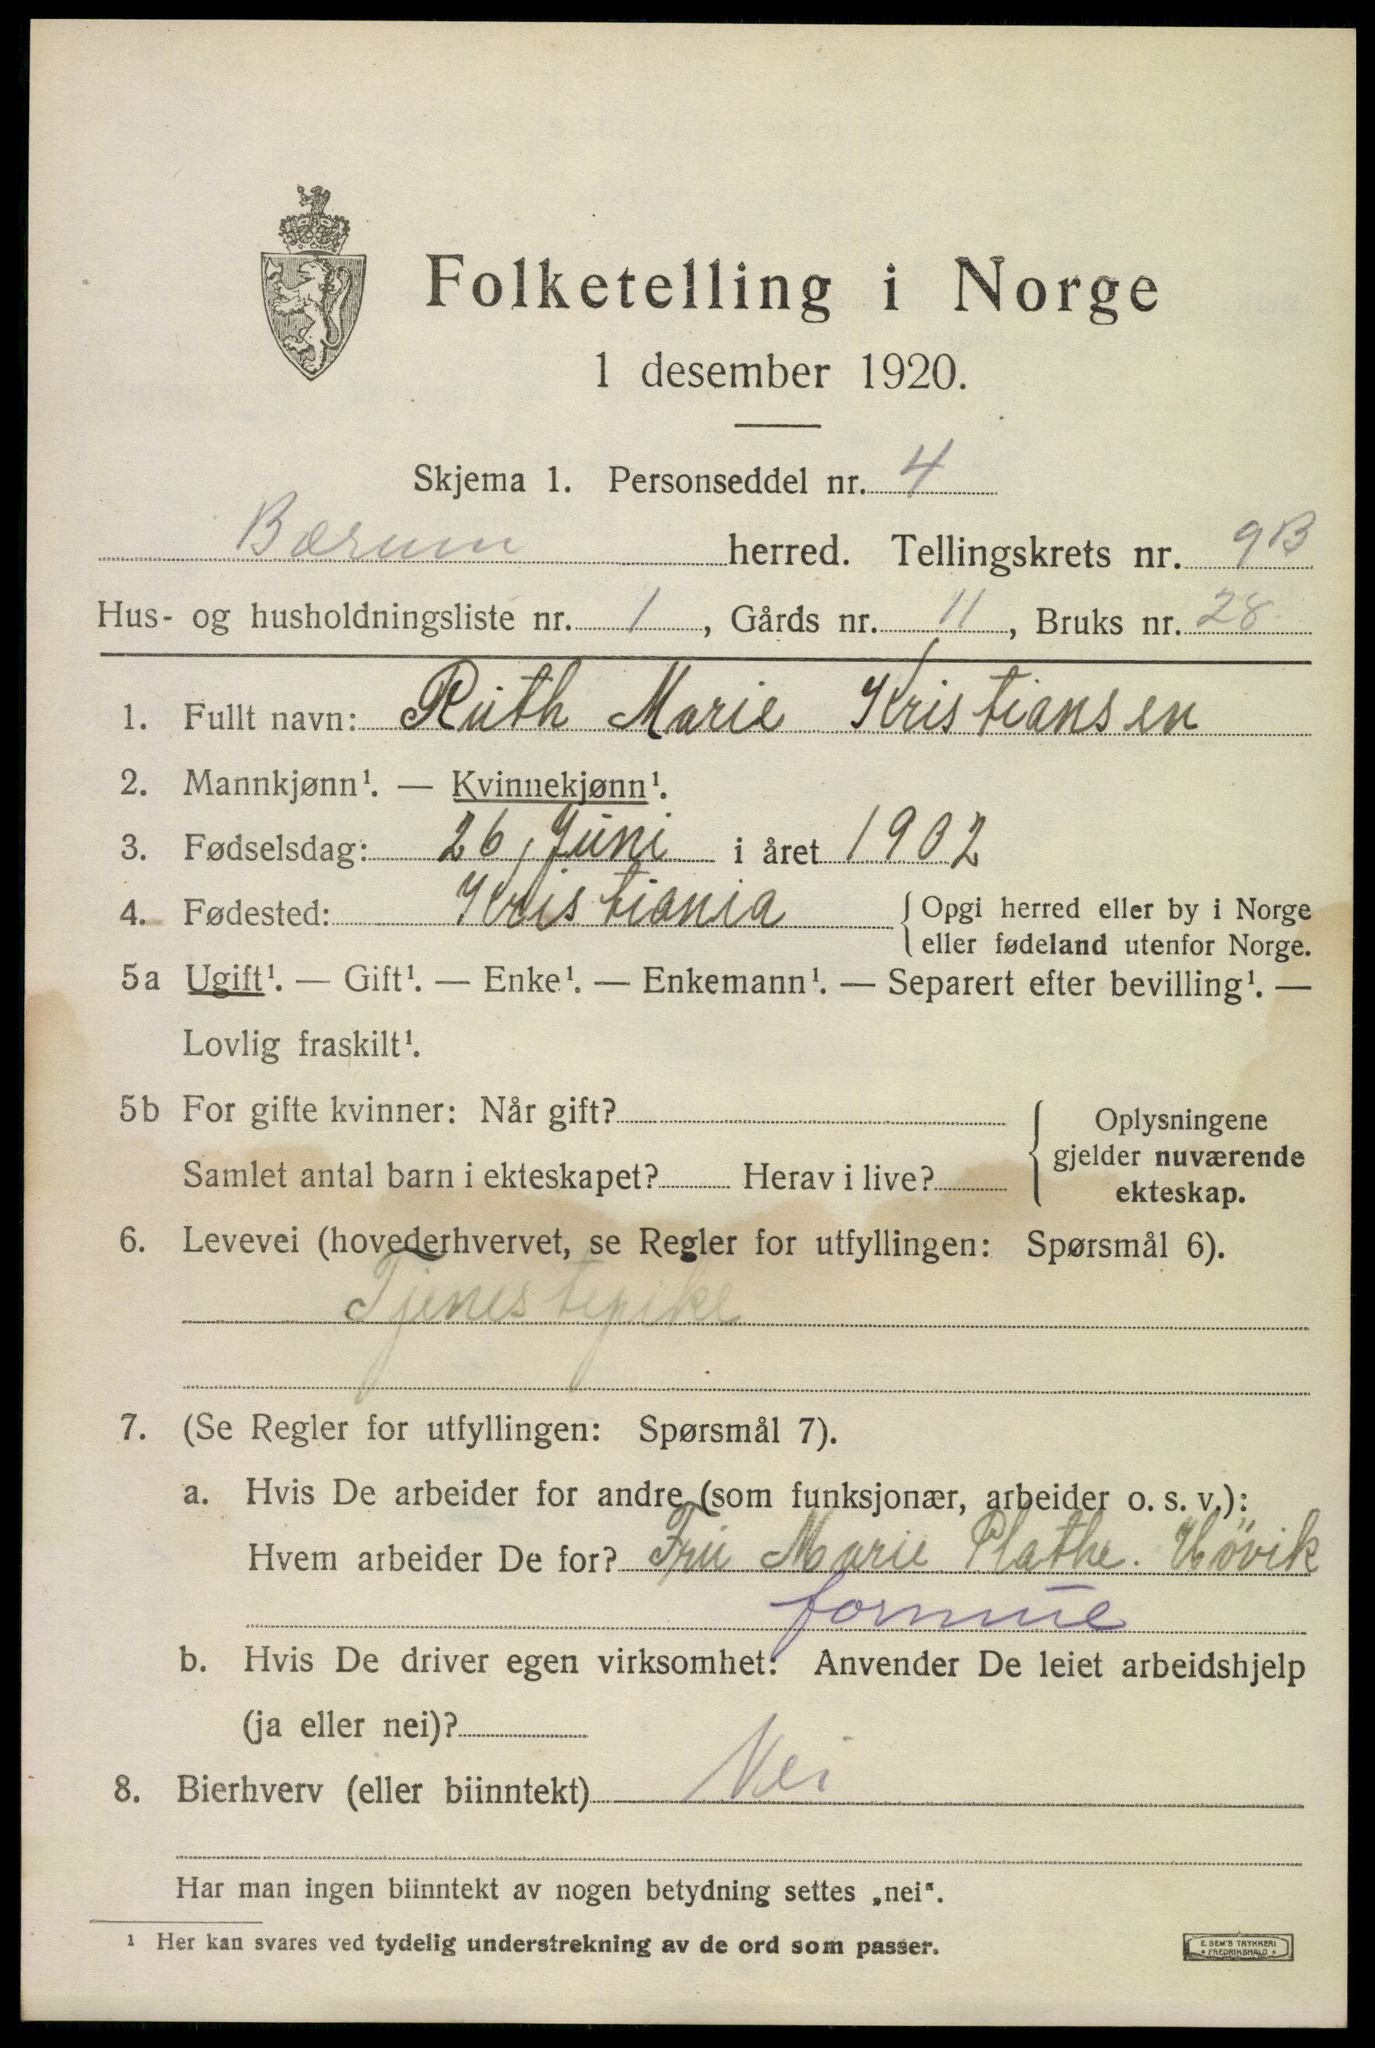 Folketelling i Norge
1 desember 1920.
Skjema 1. Personseddel nr. 4
Bærum herred. Tellingskrets nr. 9B
Hus- og husholdningsliste nr. 1, Gårds nr. 11, Bruks nr. 28.
1. Fullt navn: Ruth Marie Kristiansen
2. Mannkjønn¹. — Kvinnekjønn¹.
3. Fødselsdag: 26, Juni i året 1902
4. Fødested: Kristiania { Opgi herred eller by i Norge
eller fødeland utenfor Norge.
5a Ugift¹. — Gift¹. — Enke¹. — Enkemann¹. — Separert efter bevilling¹. —
Lovlig fraskilt¹.
5b For gifte kvinner: Når gift? { Oplysningene
gjelder nuværende
Samlet antal barn i ekteskapet? Herav i live?
ekteskap.
6. Levevei (hovederhvervet, se Regler for utfyllingen: Spørsmål 6).
Tjenestepike
7. (Se Regler for utfyllingen: Spørsmål 7).
a. Hvis De arbeider for andre (som funksjonær, arbeider o. s. v.):
Hvem arbeider De for? Fru Marie Plathe. Høvik
formue
b. Hvis De driver egen virksomhet: Anvender De leiet arbeidshjelp
(ja eller nei)?
8. Bierhverv (eller biinntekt) Nei
Har man ingen biinntekt av nogen betydning settes „nei“.
¹ Her kan svares ved tydelig understrekning av de ord som passer.
E. SEM'S TRYKKERI
* FREDRIKSHALD *